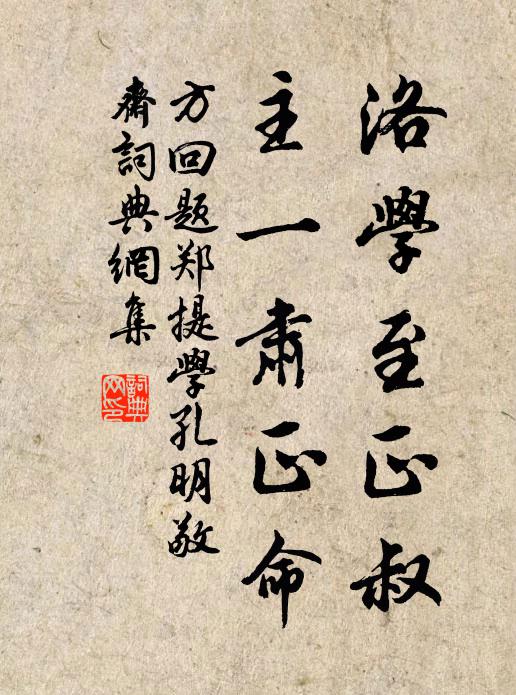 洛學至正叔
主一肅正命
方回题郑提學孔明敬
齋詞典網集
詞典網印